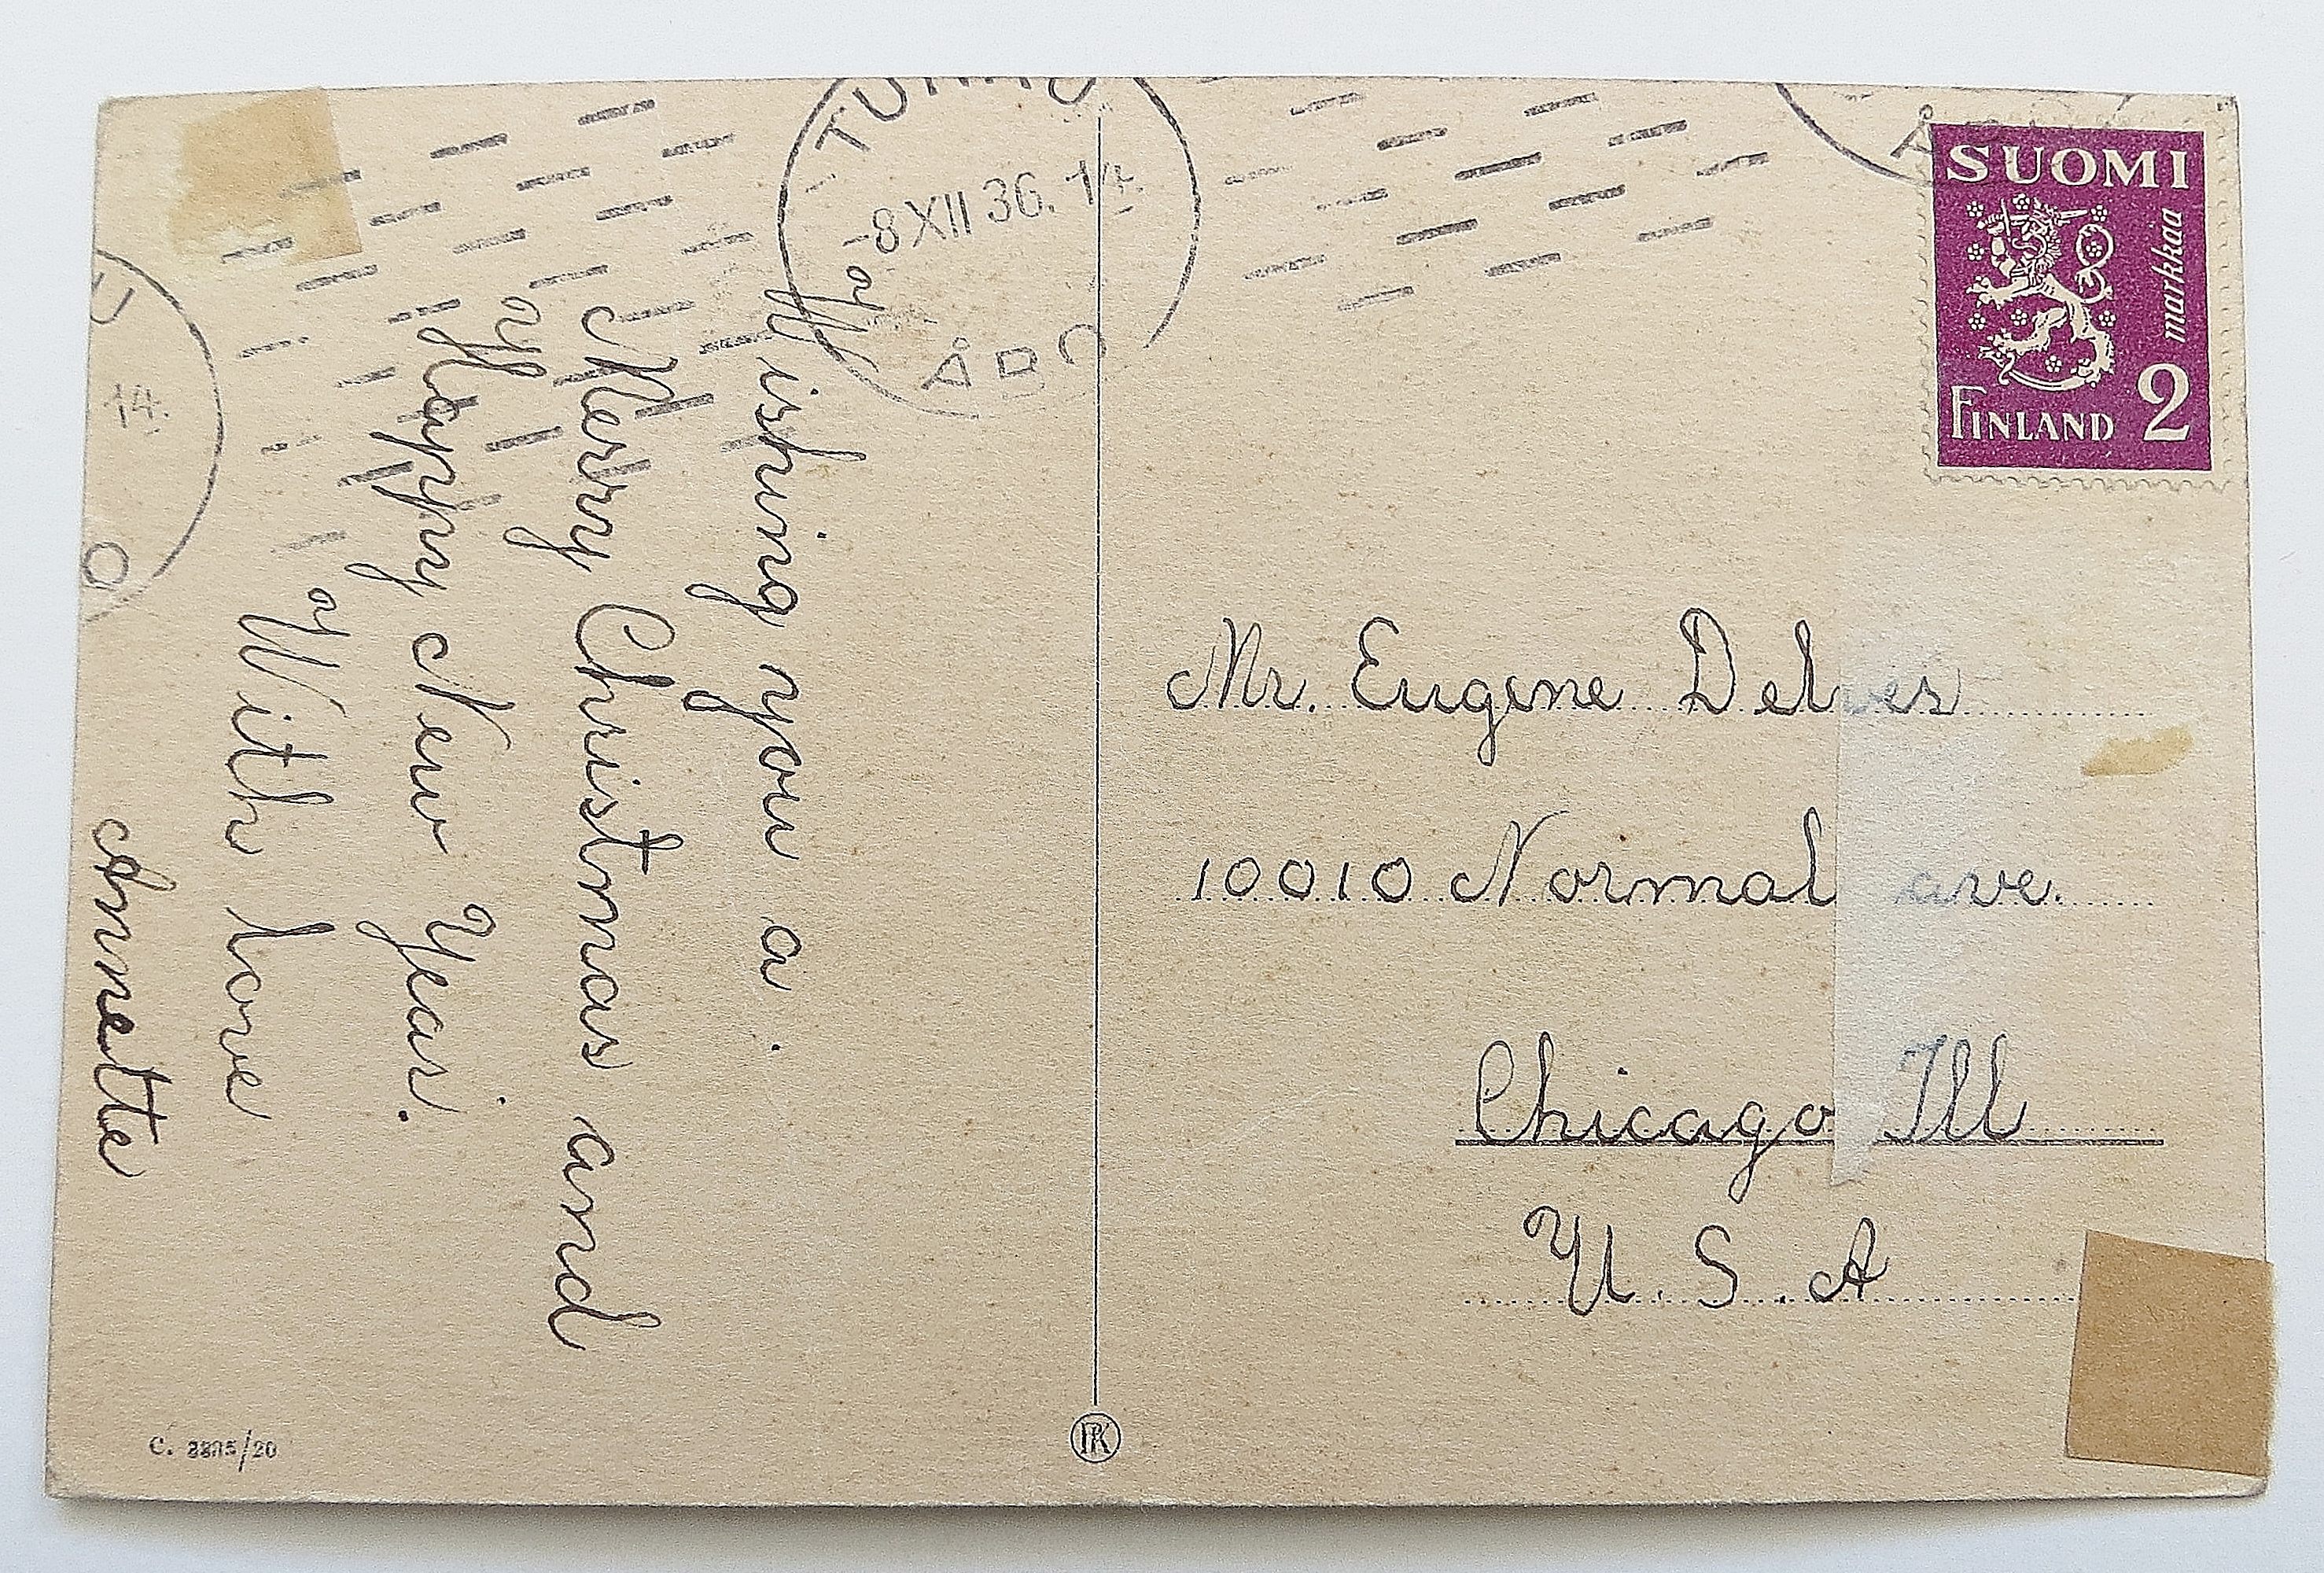 TURKU
-8 XII 36. 14.
ÅBO
U
14.
O
Å
SUOMI
markkaa
FINLAND 2
Wishing you a.
Merry Christmas and
Happy New Year.
With love
Annette
Mr. Eugene Delves
10010 Normal ave.
Chicago Ill
U.S.A
PK